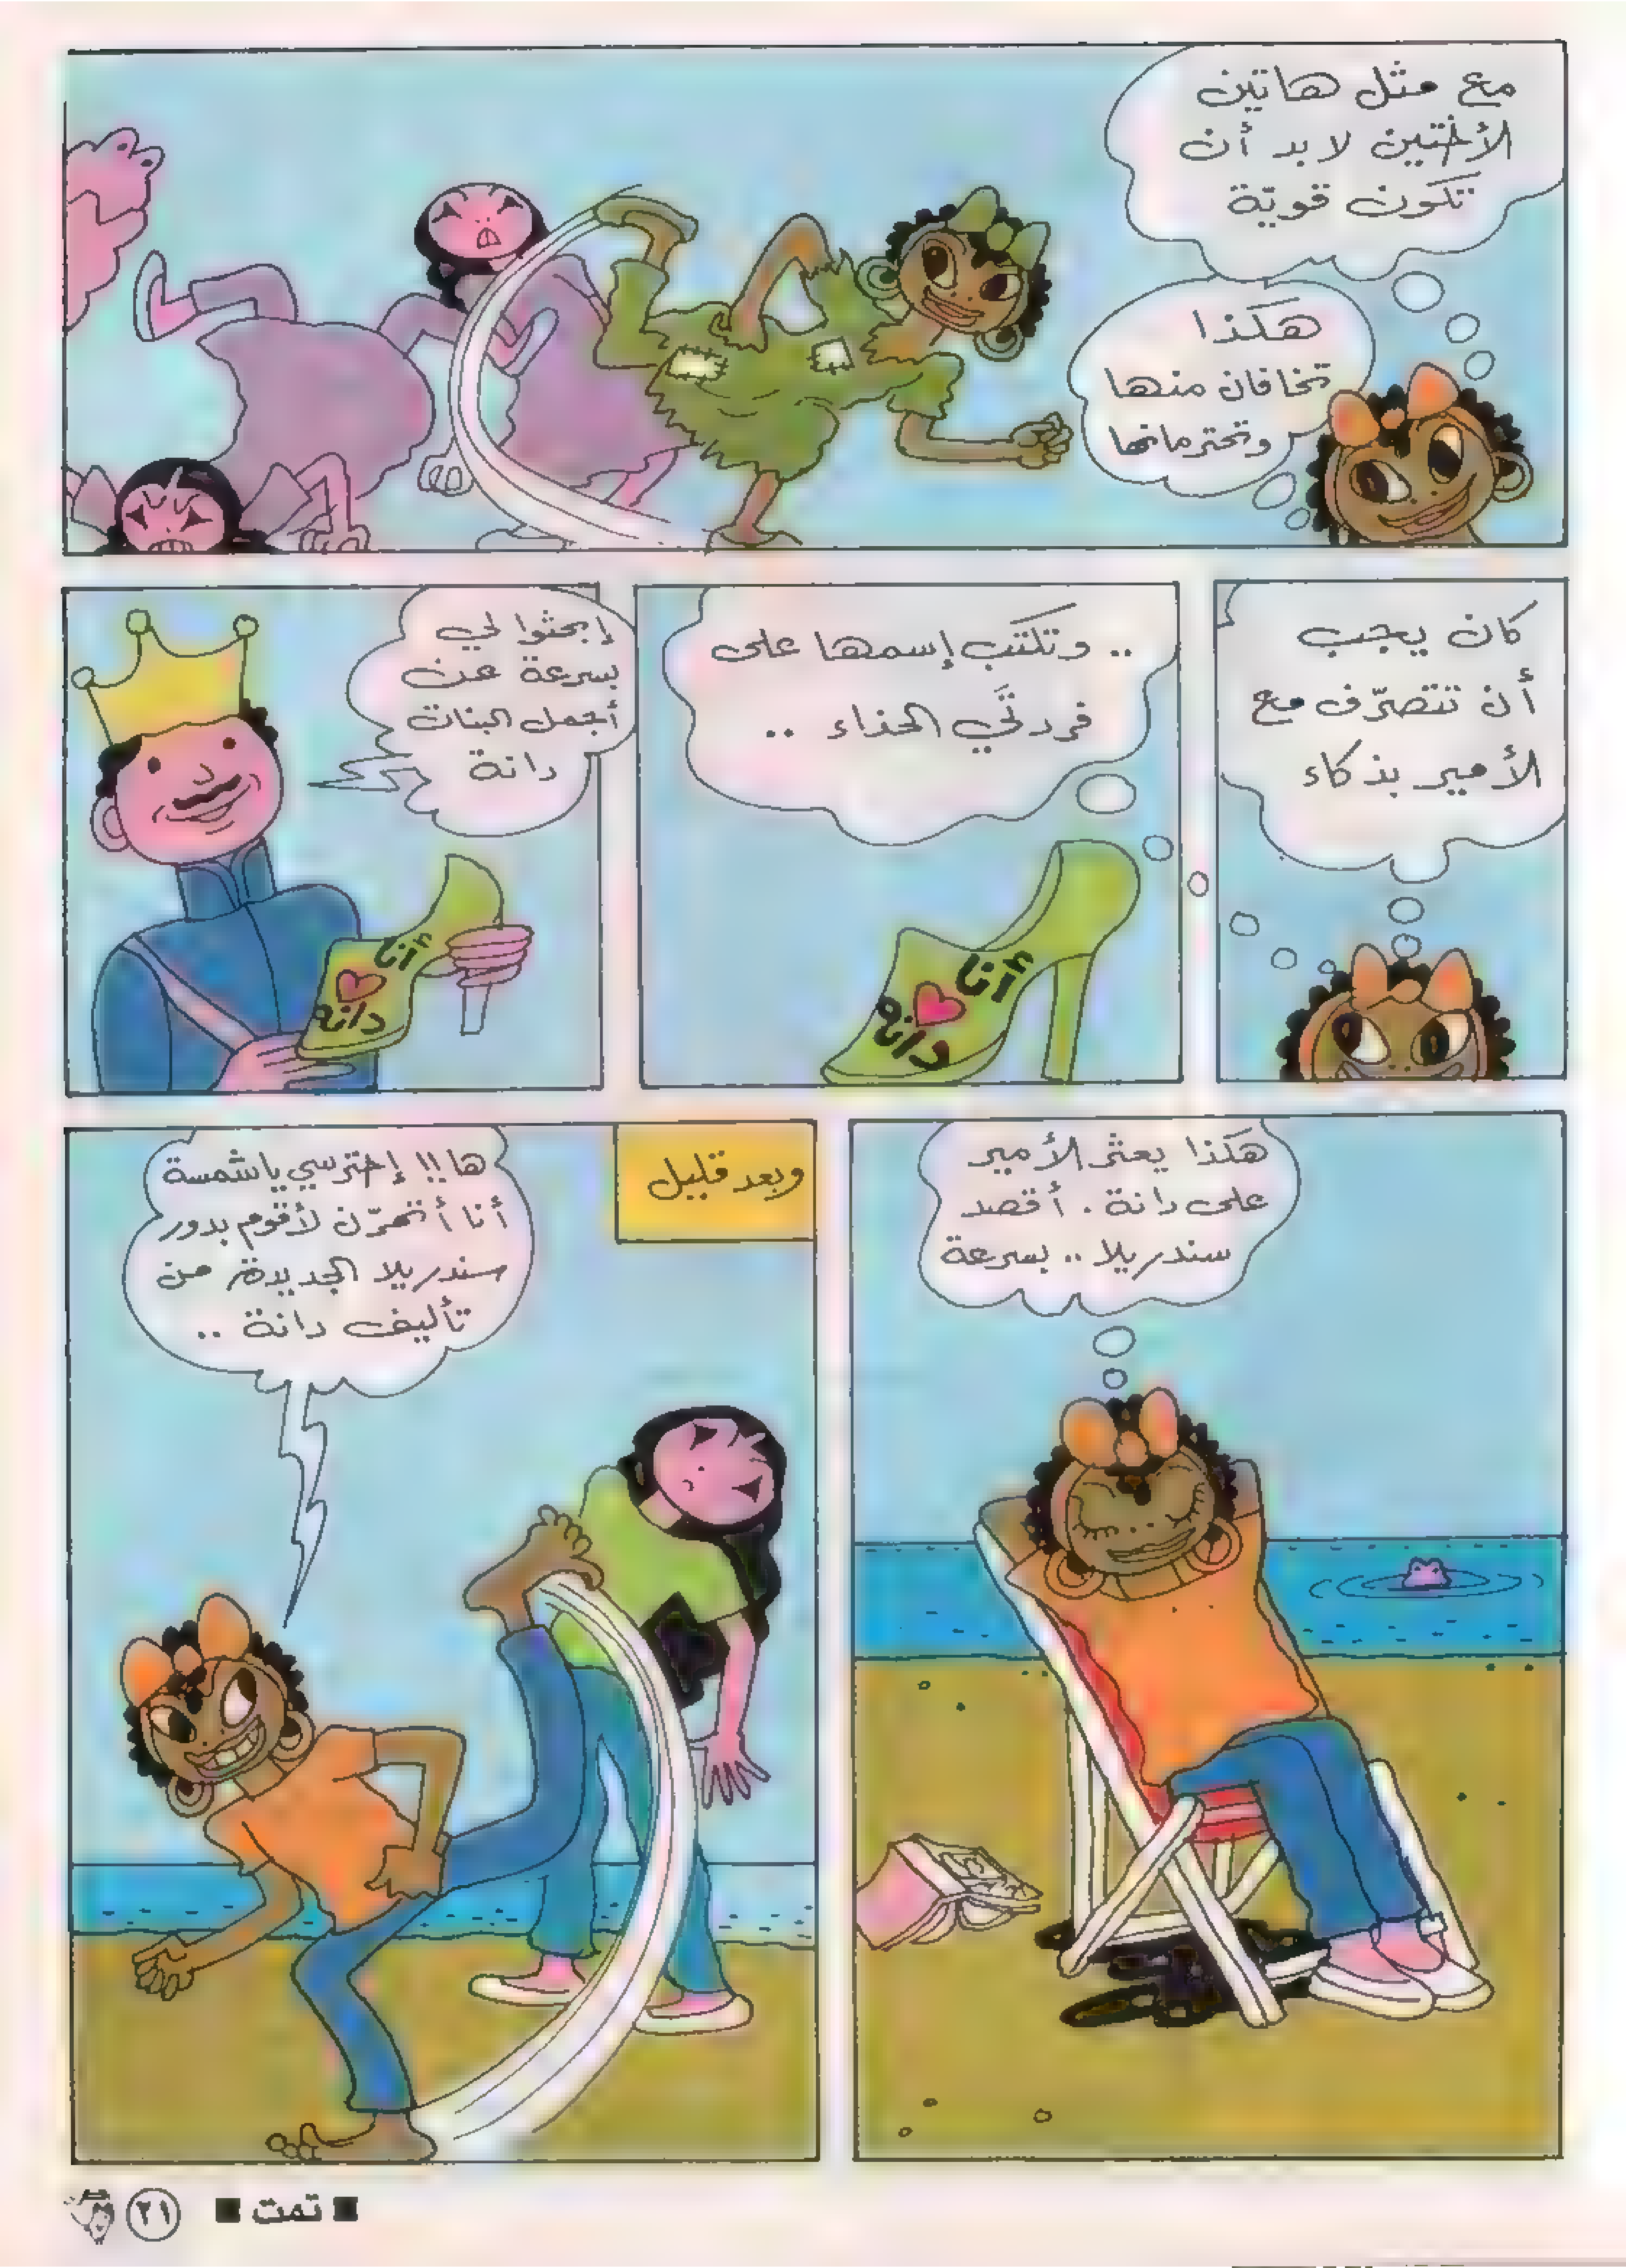 مع مثل هاتين
الأختين لا بد أن
تكون قويّة
هكذا
تخافان منها
وتحترمانها
كان يجب
أن تتصرّف مع
الأمير بذكاء
.. وتكتب إسمها على
فردتَي الحذاء ..
أنا
دانه
إبحثوا لي
بسرعة عن
أجمل البنات
دانة
أنا
دانه
هكذا يعثر الأمير
على دانة . أقصد
سندريلا .. بسرعة
وبعد قليل
ها!! إحترسي يا شمسة
أنا أتمرّن لأقوم بدور
سندريلا الجديدة من
تأليف دانة ..
■ تمت ■
٢١